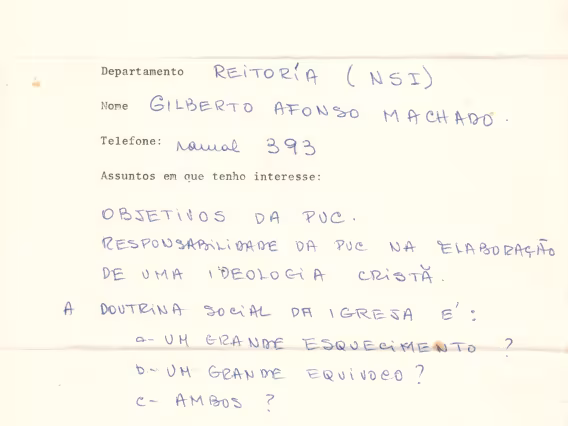 Departamento REITORÍA (NSI)
Nome GILBERTO AFONSO MACHADO.
Telefone: ramal 393
Assuntos em que tenho interesse:
OBJETIVOS DA PUC.
RESPONSABILIDADE DA PUC NA ELABORAÇÃO
DE UMA IDEOLOGIA CRISTÃ.
A DOUTRINA SOCIAL DA IGREJA É:
a- UM GRANDE ESQUECIMENTO ?
b- UM GRANDE EQUIVOCO ?
c- AMBOS ?